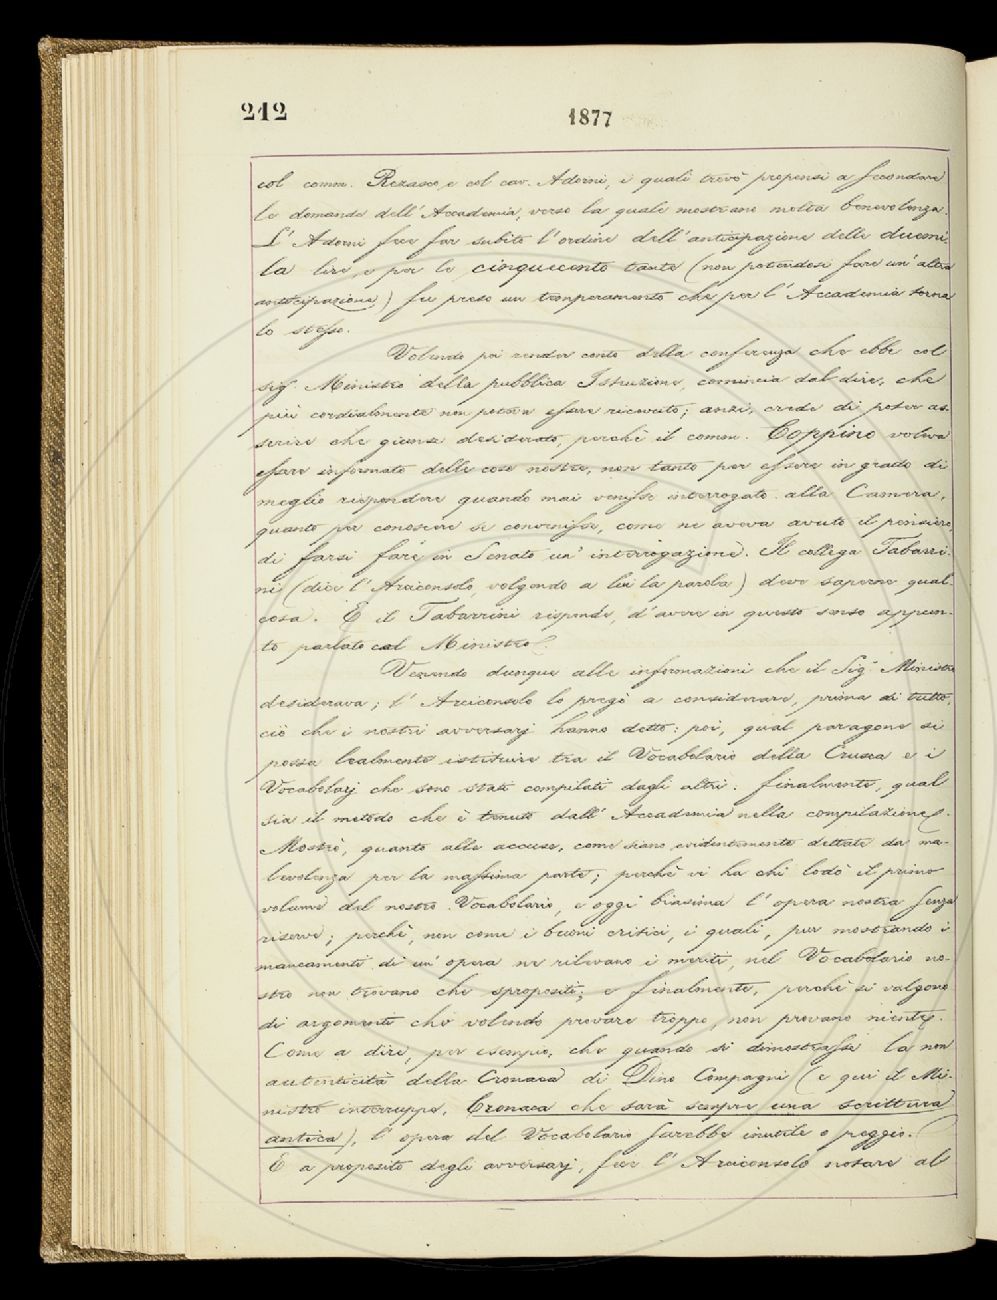 212
1877
col comm. Rezasco, e col cav. Adorni, i quali trovò propensi a secondare
le domande dell'Accademia, verso la quale mostrano molta benevolenza.
L'Adorni fece far subito l'ordine dell'anticipazione delle duemi-
la lire, e per le cinquecento tante (non potendosi fare un'altra
anticipazione) fu preso un temperamento che per l'Accademia torna
lo stesso.
Volendo poi render conto della conferenza che ebbe col
sig.r Ministro della pubblica Istruzione, comincia dal dire, che
più cordialmente non poteva essere ricevuto; anzi, crede di poter as-
serire che giunse desiderato, perchè il comm. Coppino voleva
essere informato delle cose nostre, non tanto per essere in grado di
meglio rispondere quando mai venisse interrogato alla Camera,
quanto per conoscere se convenisse, come ne aveva avuto il pensiero
di farsi fare in Senato un'interrogazione. Il collega Tabarri-
ni (dice l'Arciconsolo, volgendo a lui la parola) deve saperne qual
cosa. E il Tabarrini risponde, d'avere in questo senso appun-
to parlato col Ministro.
Venendo dunque alle informazioni che il Sig.r Ministro
desiderava; l'Arciconsolo lo pregò a considerare, prima di tutto,
ciò che i nostri avversarj hanno detto: poi, qual paragone si
possa lealmente istituire tra il Vocabolario della Crusca e i
Vocabolarj che sono stati compilati dagli altri: finalmente, qual
sia il metodo che è tenuto dall'Accademia nella compilazione.
Mostrò, quanto alle accuse, come siano evidentemente dettate da ma-
levolenza per la massima parte; perchè vi ha chi lodò il primo
volume del nostro Vocabolario, e oggi biasima l'opera nostra senza
riserve; perchè, non come i buoni critici, i quali, pur mostrando i
mancamenti di un'opera ne rilevano i meriti, nel Vocabolario no-
stro non trovano che spropositi; e finalmente, perchè si valgono
di argomenti che volendo provare troppo, non provano niente.
Come a dire, per esempio, che quando si dimostrasse la non
autenticità della Cronaca di Dino Compagni (e qui il Mi-
nistro interruppe, Cronaca che sarà sempre una scrittura
antica), l'opera del Vocabolario sarebbe inutile o peggio.
E a proposito degli avversarj, fece l'Arciconsolo notare al